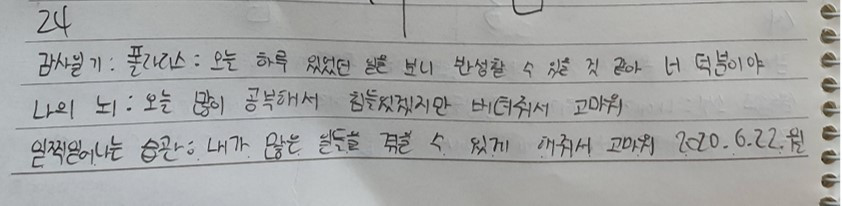 24
감사일기: 폴라리스: 오늘 하루 있었던 일을 보니 반성할 수 있을 것 같아 너 덕분이야
나의 뇌: 오늘 많이 공부해서 힘들었겠지만 버텨줘서 고마워
일찍일어나는 습관: 내가 많은 일들을 겪을 수 있게 해줘서 고마워 2020.6.22.월